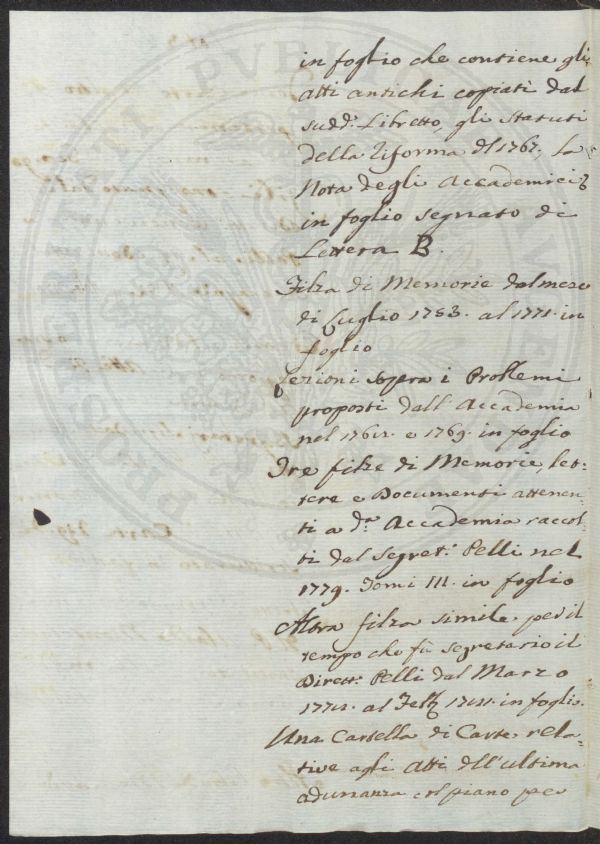 in foglio che contiene gli
atti antichi copiati dal
sudd.º Libretto, gli Statuti
della riforma del 1767, La
Nota degli Accademici
in foglio segnato di
Lettera B.
Filza di Memorie dal mese
di Luglio 1753. al 1771. in
foglio
Lezioni sopra i Problemi
proposti dall'Accademia
nel e 1769. in foglio
Tre filze di Memorie, let=
tere e Documenti attenen=
ti a d.ª Accademia raccol=
ti dal Segret.º Pelli nel
1779. Tomi III. in foglio
Altra filza simile per il
tempo che fù segretario il
Dirett.e Pelli dal Marzo
al in foglio.
Una Cartella di Carte rela=
tive agli Atti dell'ultima
adunanza col piano per
PROSPERITATI PVBLICAE